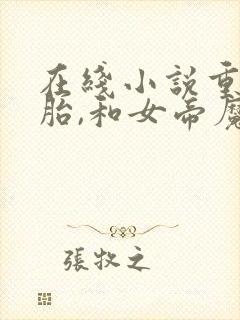 在綫小説重
胎,和女帝魔
張牧之